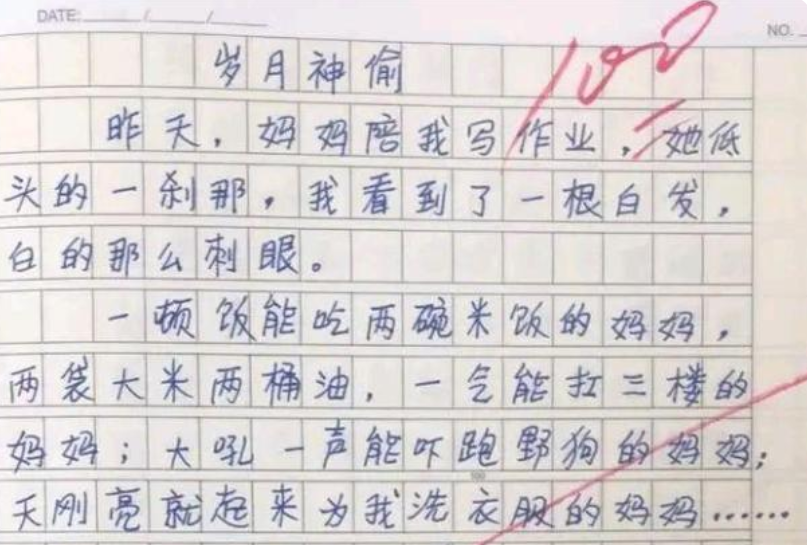 DATE: / /
NO.
100
岁月神偷
昨天，妈妈陪我写作业，她低
头的一刹那，我看到了一根白发，
白的那么刺眼。
一顿饭能吃两碗米饭的妈妈，
两袋大米两桶油，一气能扛三楼的
妈妈；大吼一声能吓跑野狗的妈妈；
天刚亮就起来为我洗衣服的妈妈……